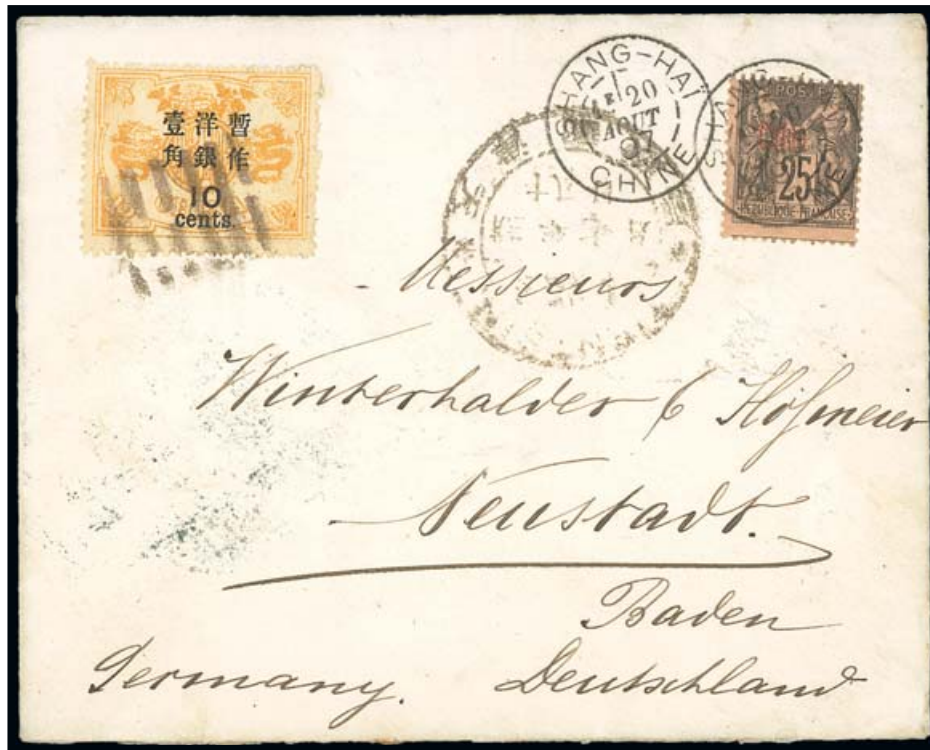 暫作
洋銀
壹角
10
cents.
SHANG-HAÏ
20
AOUT
CHINE
POS
25
REPUBLIQUE FRANCAISE
Messieurs
Winterhalder & Hofmeier
Neustadt.
Baden
Germany. Deutschland